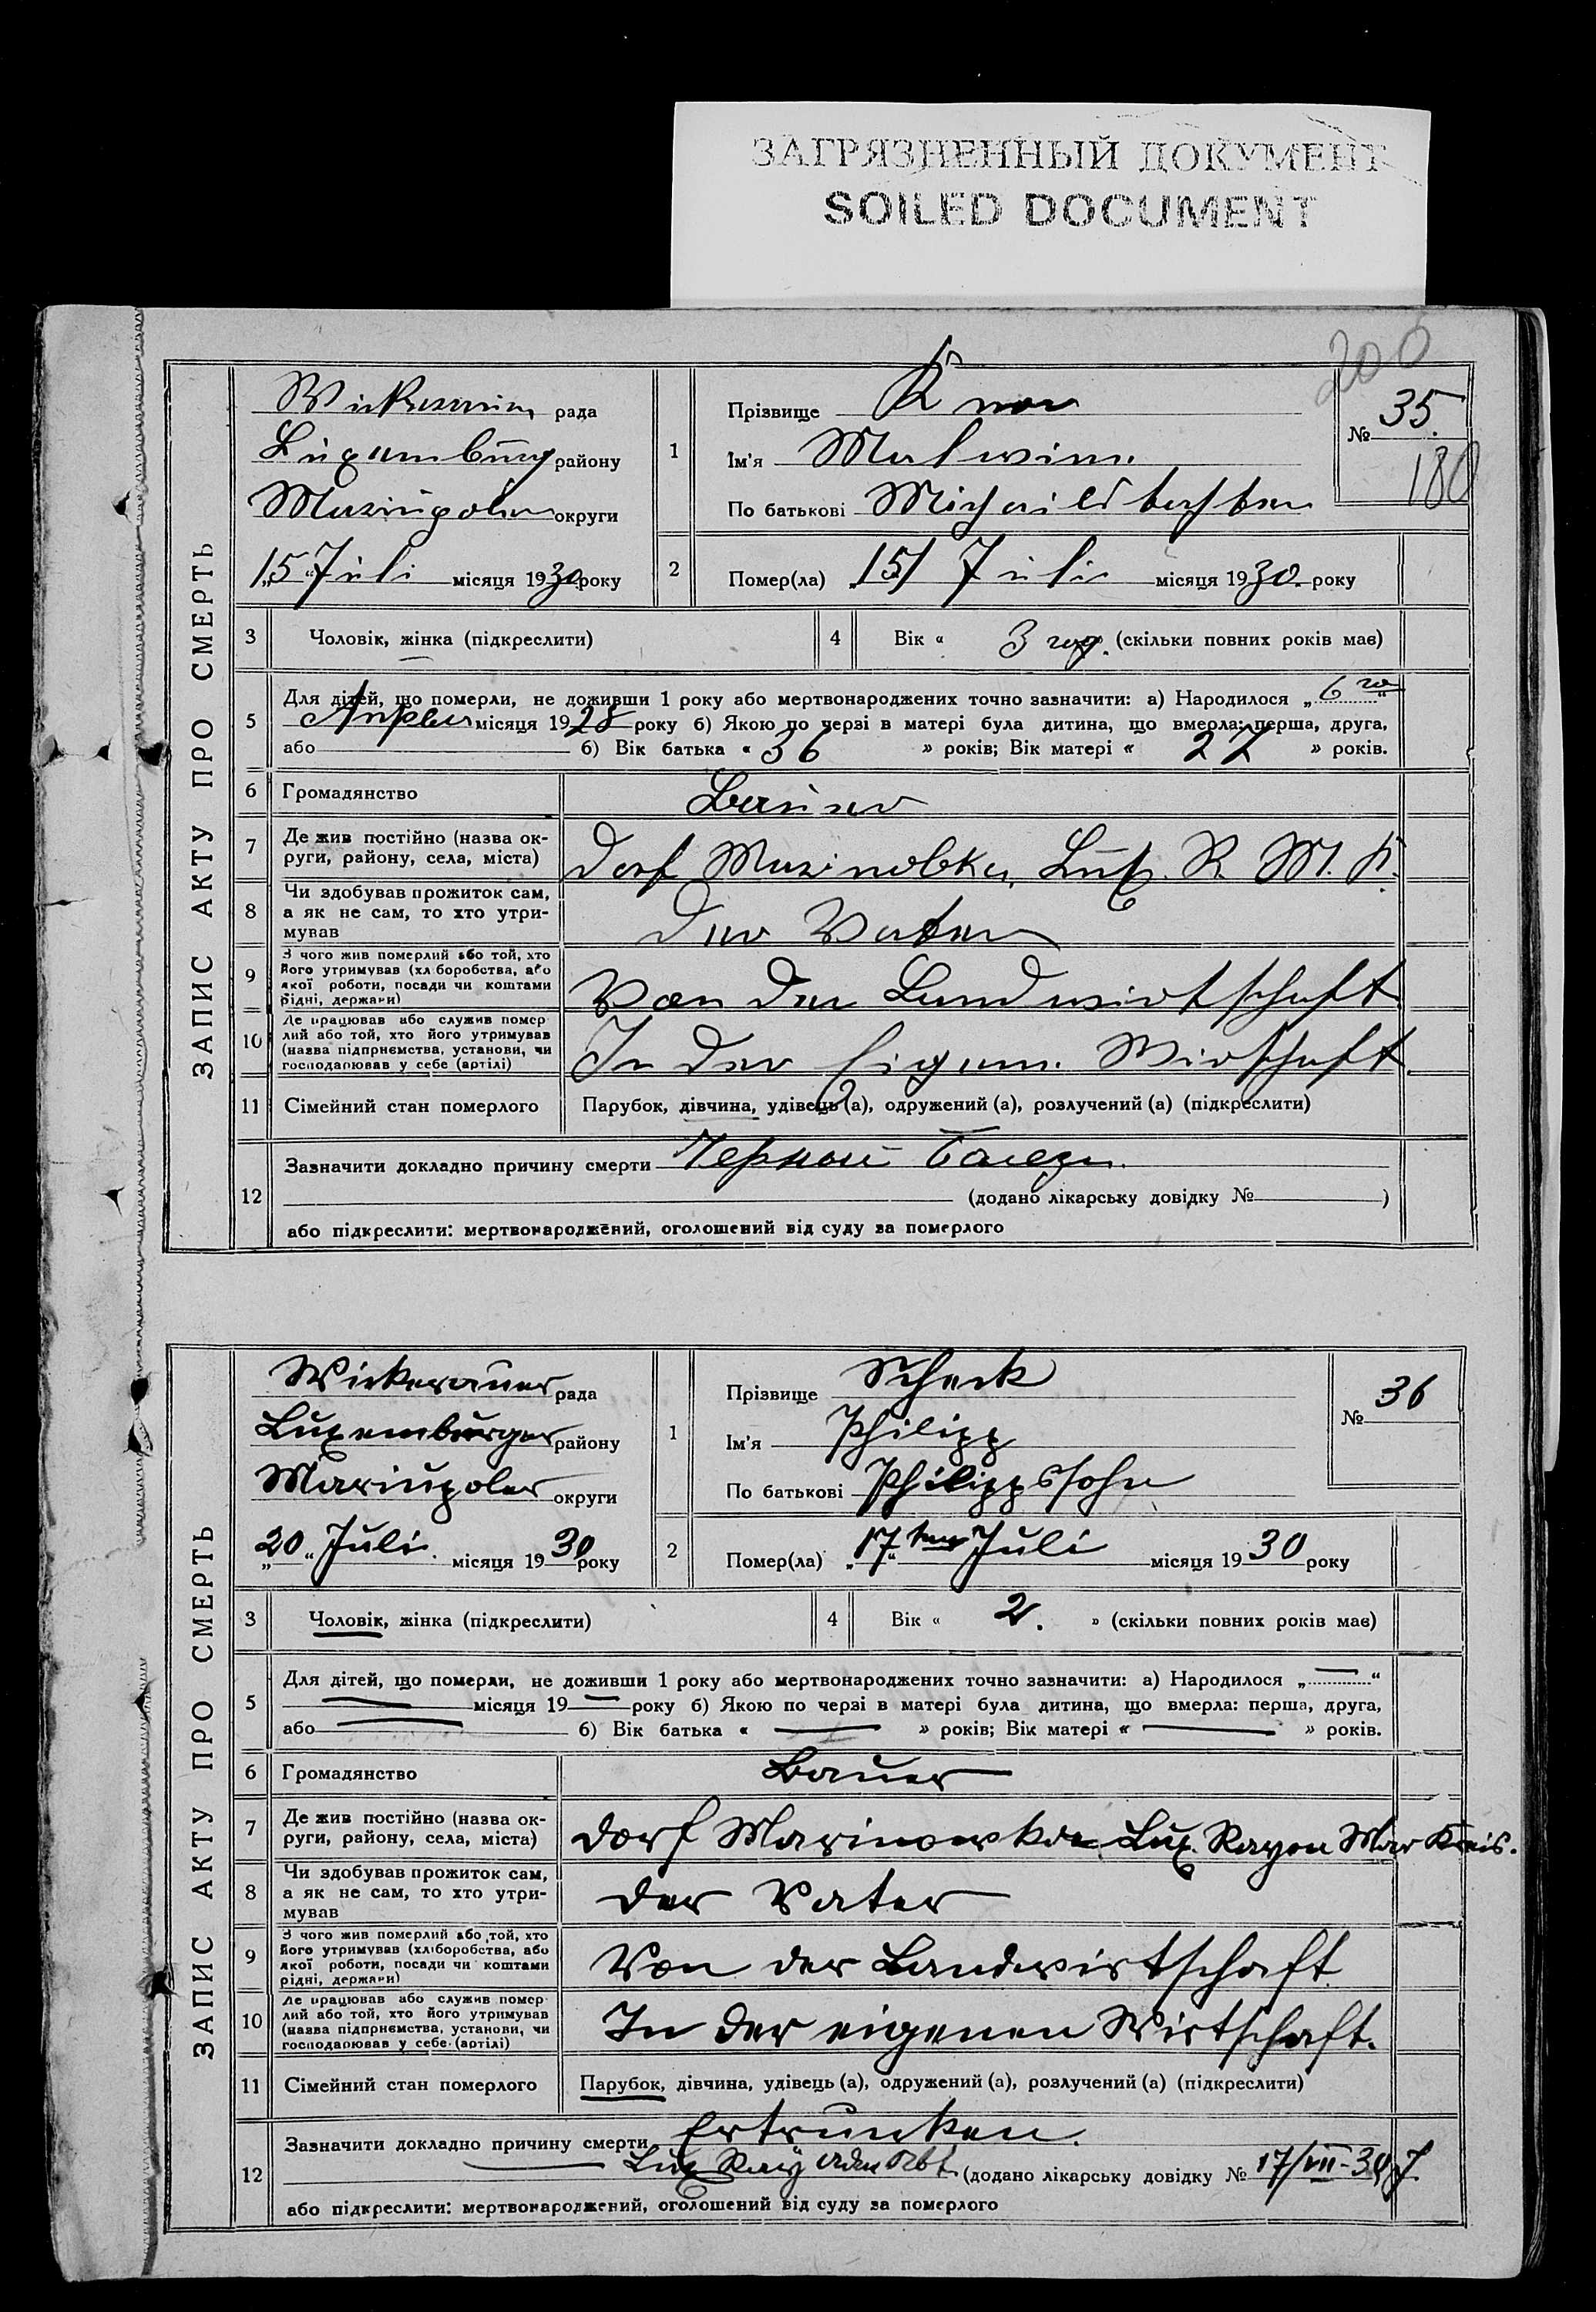 ЗАГРЯЗНЕННЫЙ ДОКУМЕНТ
SOILED DOCUMENT
200
ЗАПИС АКТУ ПРО СМЕРТЬ
рада
району
округи
„15“ Juli місяця 1930 року
1
Прізвище
Ім'я Malwina
По батькові
№ 35.
180
2
Помер(ла) „15“ Juli місяця 1930. року
3 Чоловік, жінка (підкреслити)
4 Вік « 3 год. (скільки повних років має)
5 Для дітей, що померли, не доживши 1 року або мертвонароджених точно зазначити: а) Народилося „6 го“
місяця 1928 року б) Якою по черзі в матері була дитина, що вмерла: перша, друга,
або б) Вік батька « 36 » років; Вік матері « 27 » років.
6 Громадянство Bauer
7 Де жив постійно (назва ок-
руги, району, села, міста)
Dorf Lux. R. M. K.
8 Чи здобував прожиток сам,
а як не сам, то хто утри-
мував
Der Vater
9 З чого жив померлий або той, хто
його утримував (хліборобства, або
якої роботи, посади чи коштами
рідні, держави)
Von der Landwirtschaft
10 Де працював або служив помер
лий або той, хто його утримував
(назва підприємства, установи, чи
господарював у себе (артілі)
In der Eigenen Wirtschaft
11 Сімейний стан померлого Парубок, дівчина, удівець (а), одружений (а), розлучений (а) (підкреслити)
12 Зазначити докладно причину смерти
(додано лікарську довідку № )
або підкреслити: мертвонароджений, оголошений від суду за померлого
ЗАПИС АКТУ ПРО СМЕРТЬ
Wickerauer рада
Luxemburger району
Mariupoler округи
„20“ Juli місяця 1930 року
1
Прізвище Scheck
Ім'я Philipp
По батькові Philippssohn
№ 36
2
Помер(ла) „17ten“ Juli місяця 1930 року
3 Чоловік, жінка (підкреслити)
4 Вік « 2. » (скільки повних років має)
5 Для дітей, що померли, не доживши 1 року або мертвонароджених точно зазначити: а) Народилося „—“
— місяця 19— року б) Якою по черзі в матері була дитина, що вмерла: перша, друга,
або — б) Вік батька « — » років; Вік матері « — » років.
6 Громадянство Bauer
7 Де жив постійно (назва ок-
руги, району, села, міста)
Dorf Marinowka Lux. Rayon Mar Kreis.
8 Чи здобував прожиток сам,
а як не сам, то хто утри-
мував
Der Vater
9 З чого жив померлий або той, хто
його утримував (хліборобства, або
якої роботи, посади чи коштами
рідні, держави)
Von der Landwirtschaft
10 Де працював або служив помер
лий або той, хто його утримував
(назва підприємства, установи, чи
господарював у себе (артілі)
In der eigenen Wirtschaft.
11 Сімейний стан померлого Парубок, дівчина, удівець (а), одружений (а), розлучений (а) (підкреслити)
12 Зазначити докладно причину смерти Ertrunken.
Lux Ray Adm Abt. (додано лікарську довідку № 17/VII-30
або підкреслити: мертвонароджений, оголошений від суду за померлого